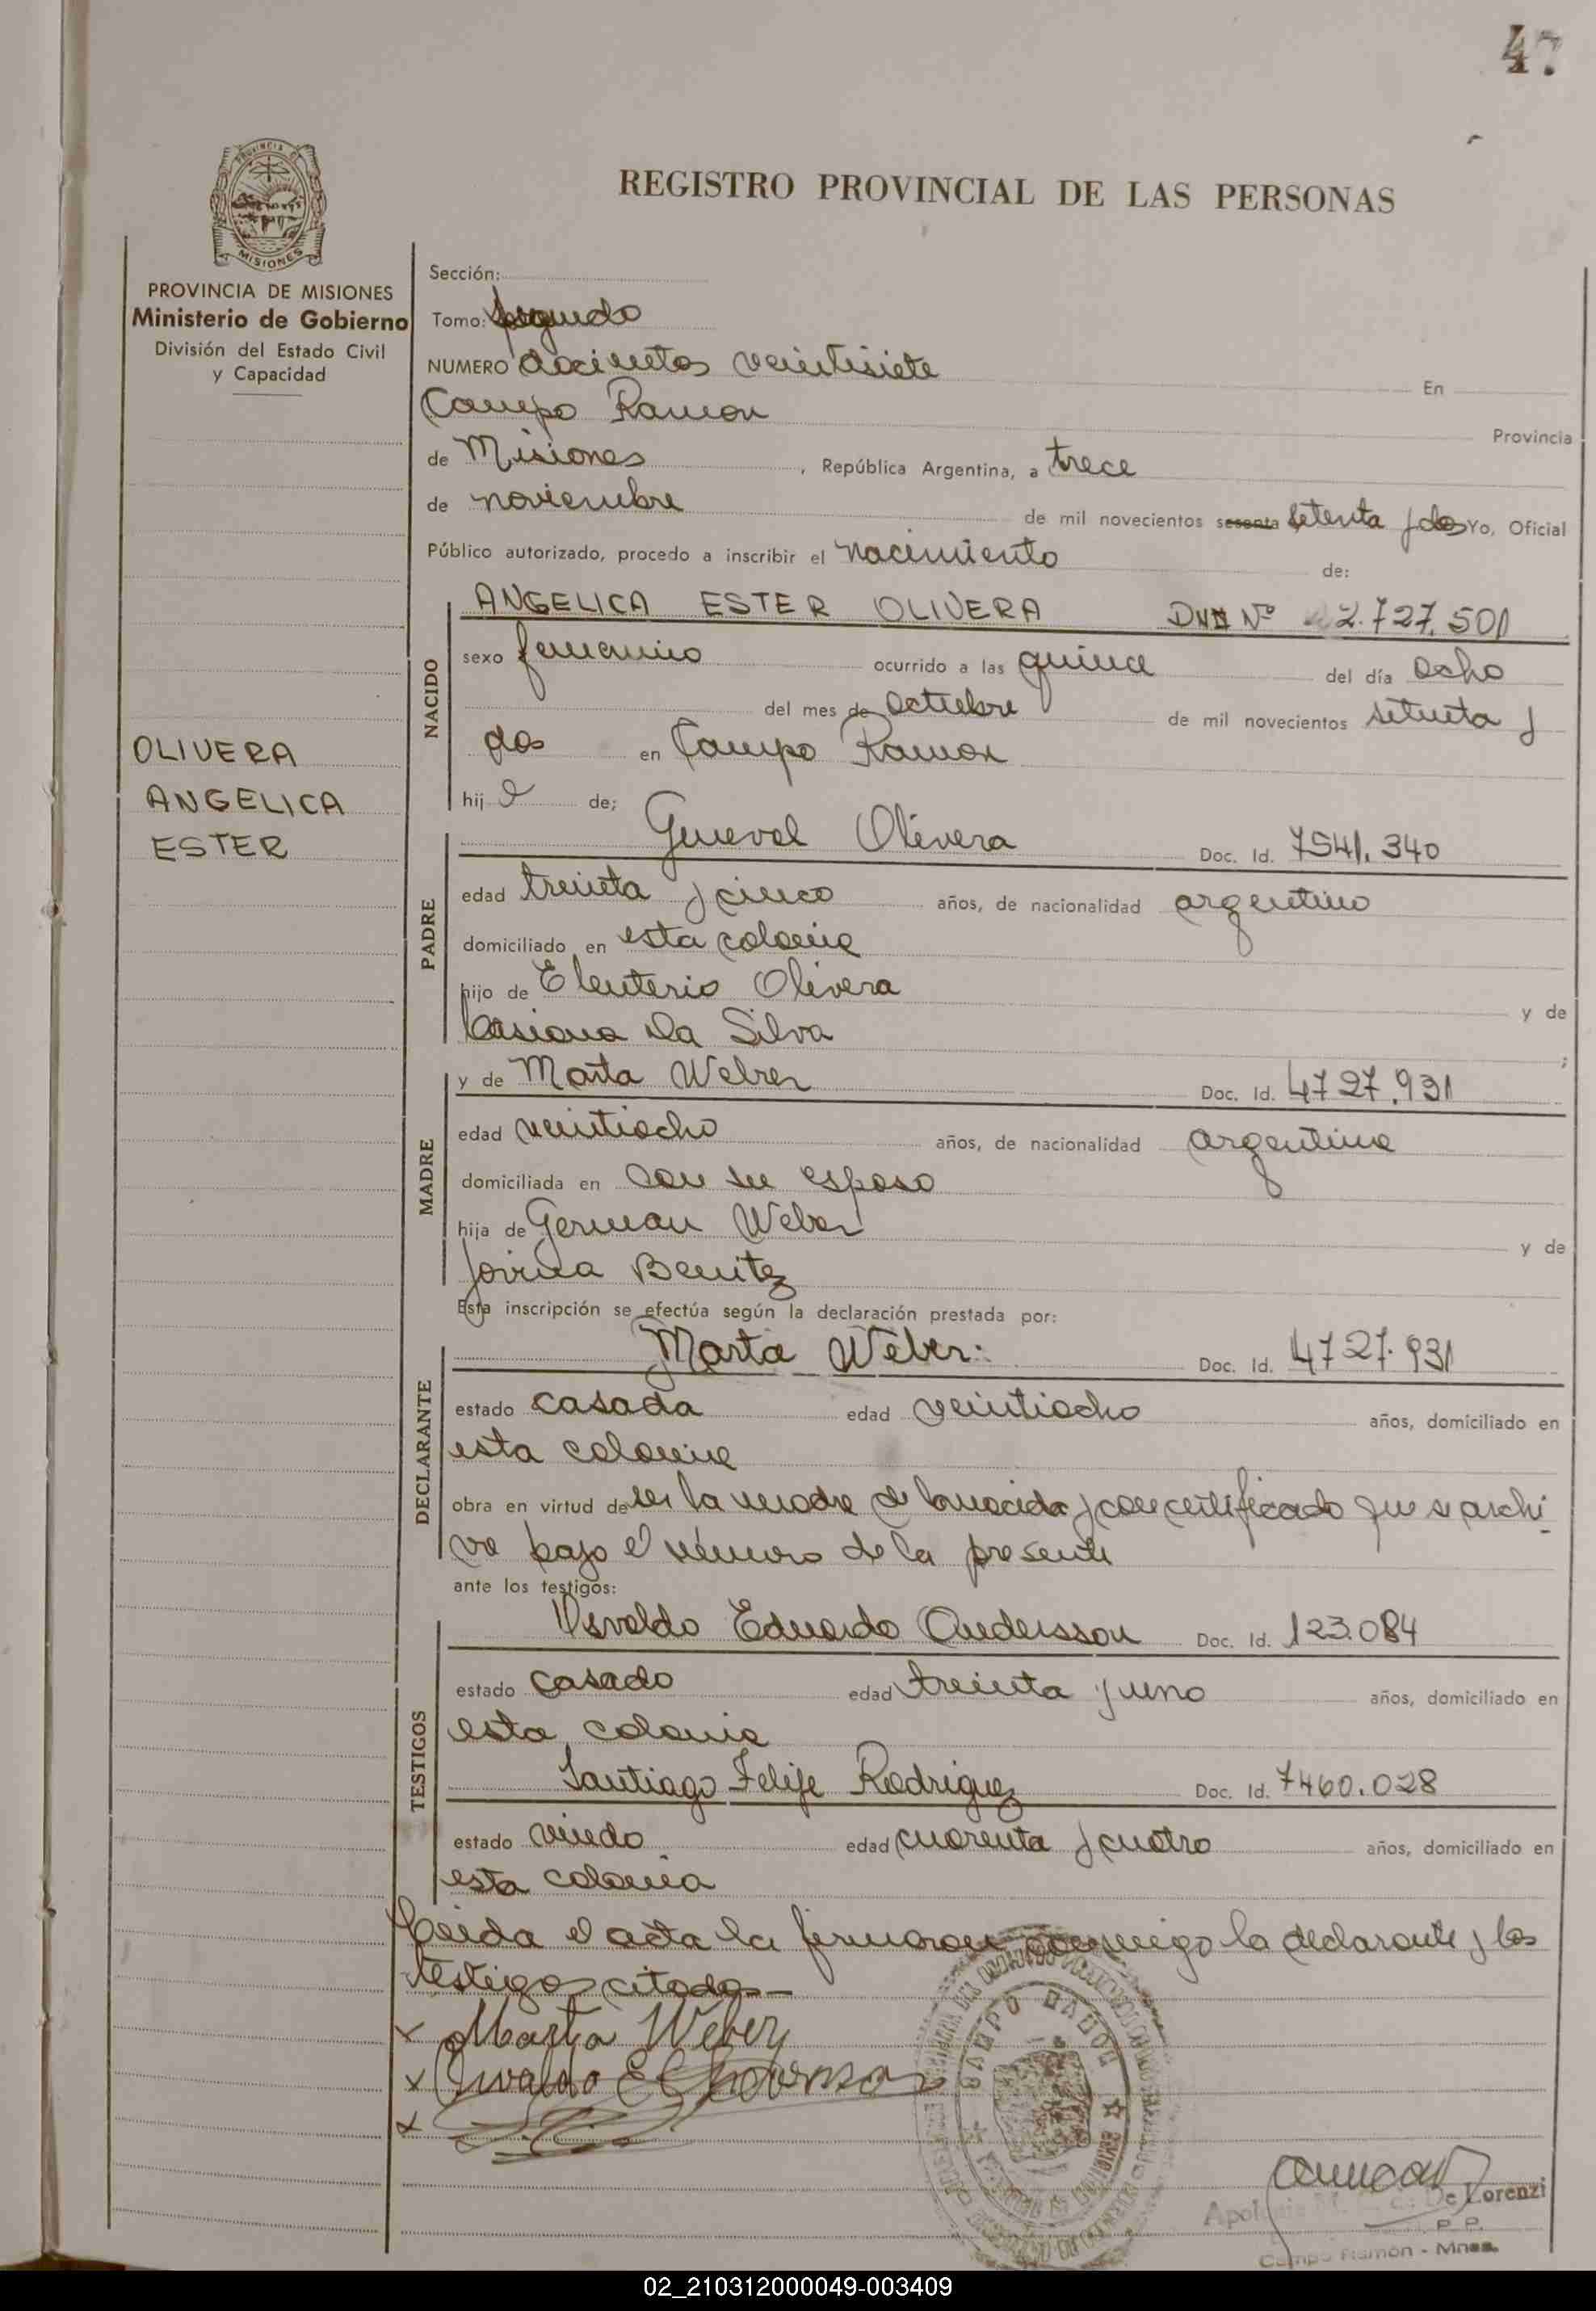 47
PROVINCIA DE MISIONES
Ministerio de Gobierno
División del Estado Civil
y Capacidad
OLIVERA
ANGELICA
ESTER
REGISTRO PROVINCIAL DE LAS PERSONAS
Sección:
Tomo: Segundo
NUMERO docientos veintisiete En
Campo Ramon Provincia
de Misiones, República Argentina, a trece
de noviembre de mil novecientos sesenta setenta y dos Yo, Oficial
Público autorizado, procedo a inscribir el nacimiento de:
NACIDO
ANGELICA ESTER OLIVERA DNI Nº 22.727.501
sexo femenino ocurrido a las quince del día ocho
del mes de octubre de mil novecientos setenta y
dos en Campo Ramon
hija de;
PADRE
Geneval Olivera Doc. Id. 7541.340
edad treinta y cinco años, de nacionalidad argentino
domiciliado en esta colonia
hijo de Eleuterio Olivera y de
Casiana Da Silva ;
MADRE
y de Marta Weber Doc. Id. 4727.931
edad veintiocho años, de nacionalidad argentina
domiciliada en con su esposo
hija de German Weber y de
Jovina Benitez
Esta inscripción se efectúa según la declaración prestada por:
DECLARANTE
Marta Weber: Doc. Id. 4727.931
estado casada edad veintiocho años, domiciliado en
esta colonia
obra en virtud de ser la madre de la nacida y con certificado que se archi-
va bajo el número de la presente
ante los testigos:
TESTIGOS
Osvaldo Eduardo Andersson Doc. Id. 123.084
estado casado edad treinta y uno años, domiciliado en
esta colonia
Santiago Felipe Rodriguez Doc. Id. 7460.028
estado viudo edad cuarenta y cuatro años, domiciliado en
esta colonia
Leida el acta la firmaron conmigo la declarante y los
testigos citados—
x Marta Weber
x Osvaldo E
x
CAMPO RAMON
De Lorenzi
P. P.
Campo Ramón - Mnes.
02_210312000049-003409